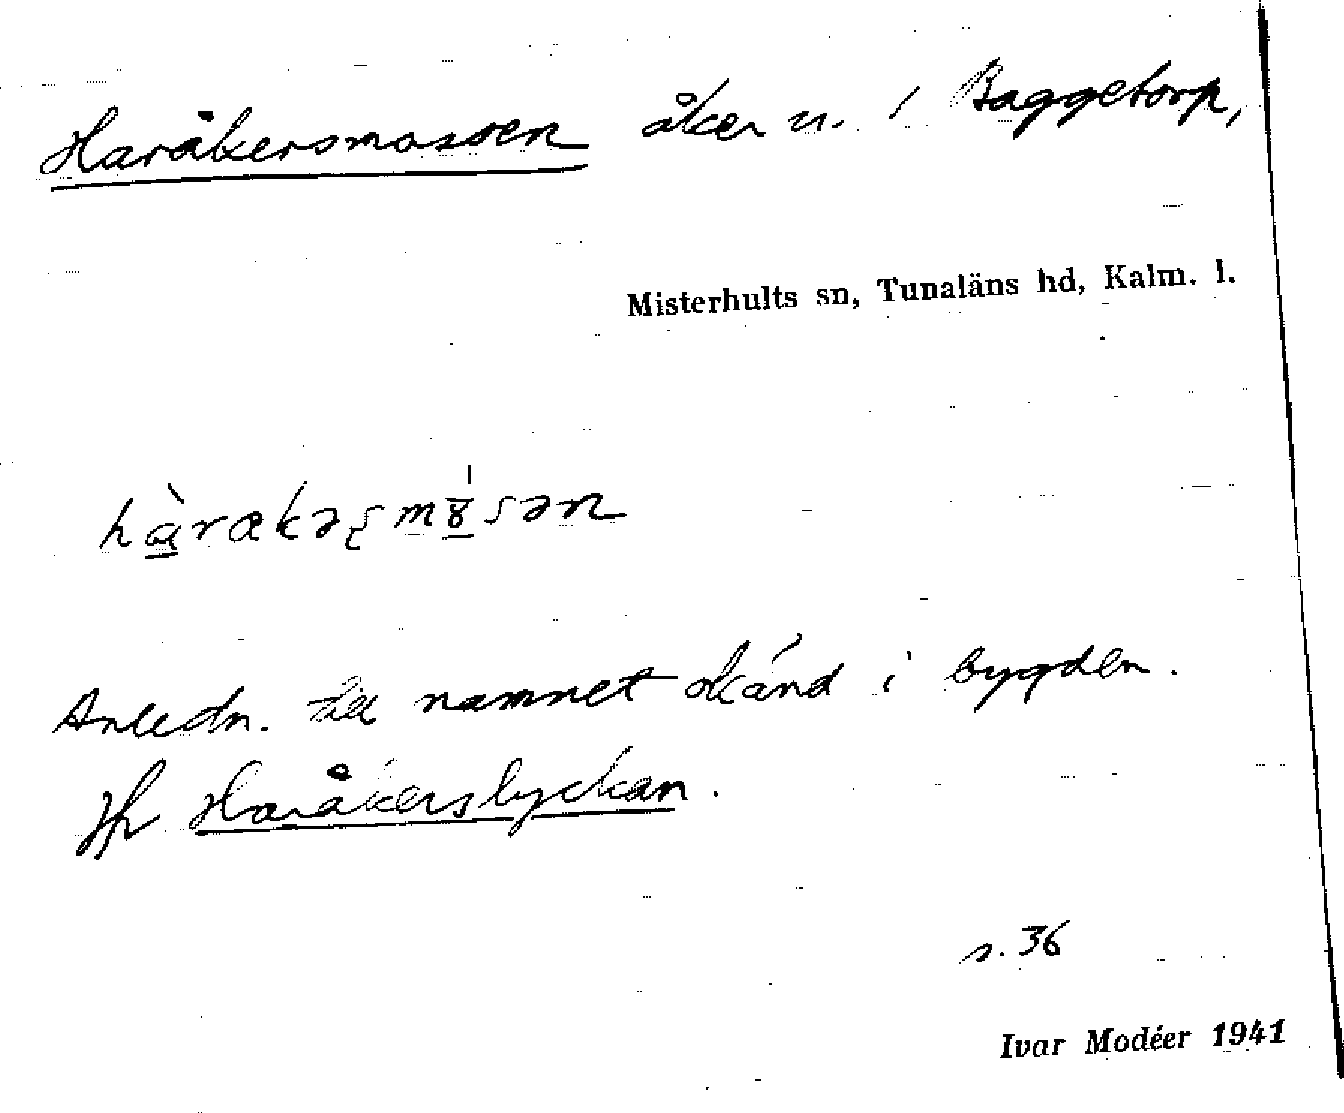 Haråkersmossen åker n. i Baggetorp,
Misterhults sn, Tunaläns hd, Kalm. l.
Anledn. till namnet okänd i bygden.
Jfr Haråkerslyckan.
s. 36
Ivar Modéer 1941